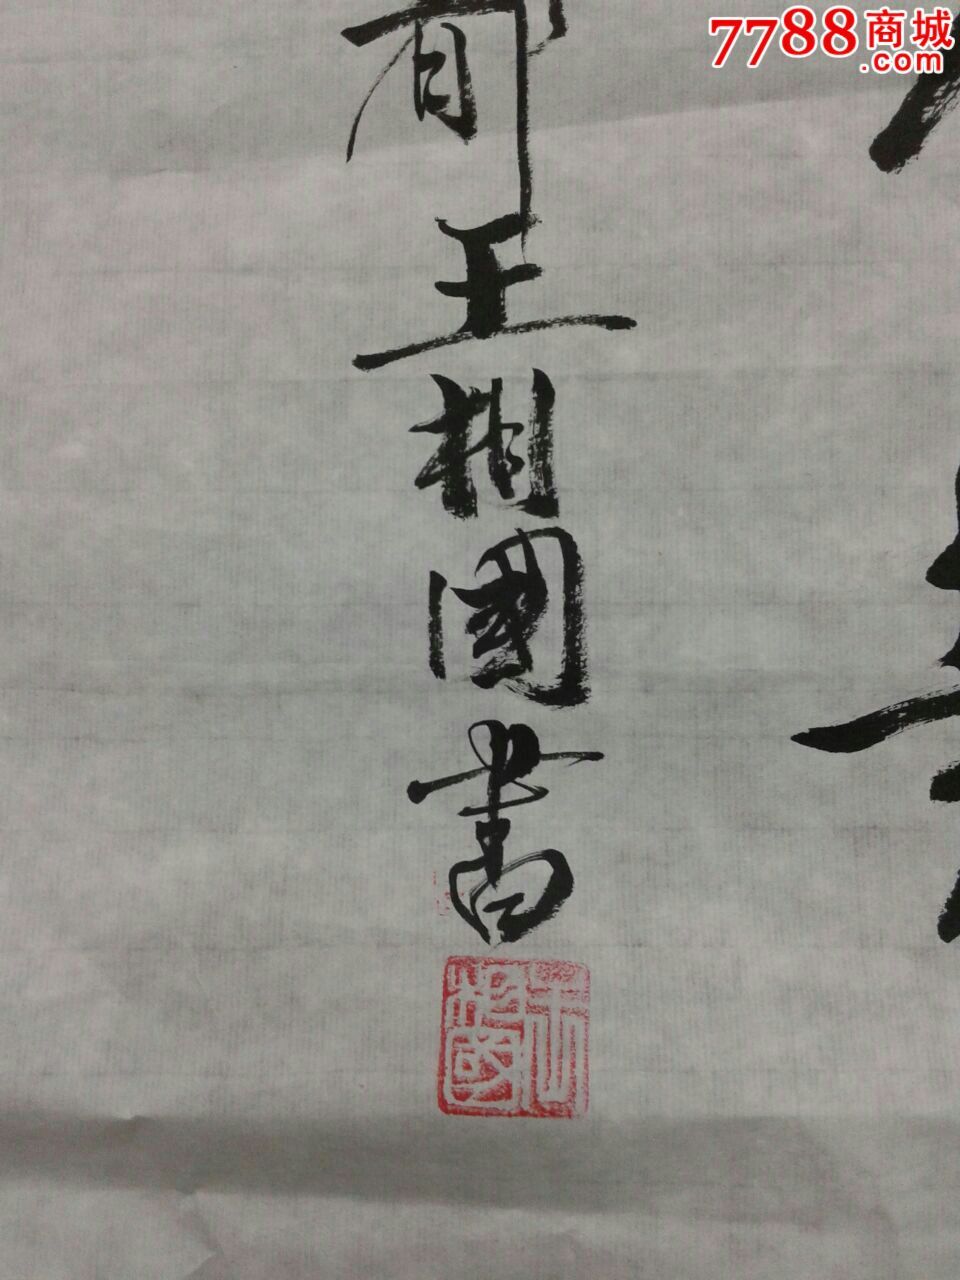 7788商城
.com
王相國書
王相國